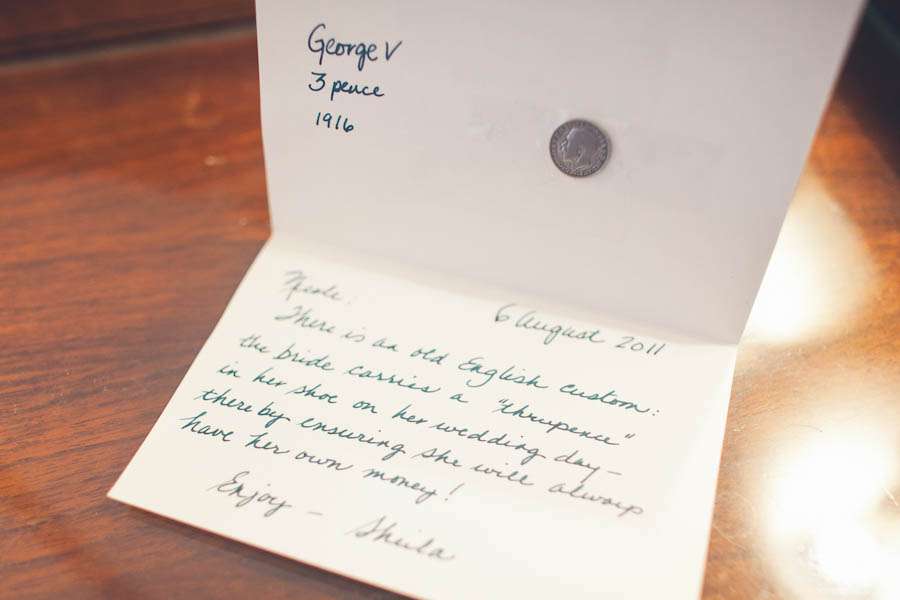 George V
3 pence
1916
Nicole:
6 August 2011
There is an old English custom:
the bride carries a "thrupence"
in her shoe on her wedding day –
thereby ensuring she will always
have her own money!
Enjoy –
Sheila